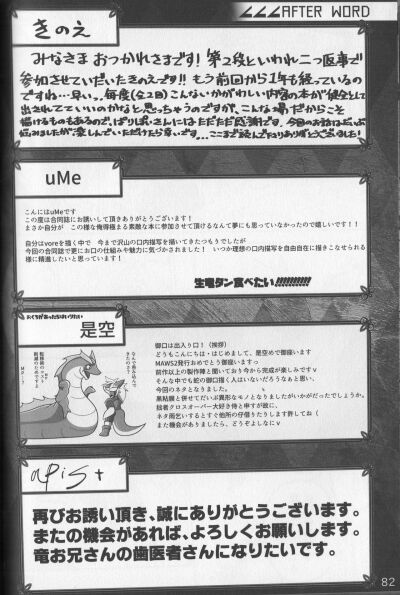 AFTER WORD
きのえ
みなさま おつかれさまです! 第2段といわれ二つ返事で
参加させていただいたきのえです!! もう前回から1年も経っているの
ですね…早い。。毎度(全2回)こんないかがわしい内容の本が健全として
出されてていいのかなと思っちゃうのですが、こんな場だからこそ
描けるものもあるので、ぱりぽりさんにはただただ感謝です。今回のお話はだいぶ
悩みましたが楽しんでいただけたら幸いです…ここまで読んでくださりありがとうございました!
uMe
こんにちはuMeです
この度は合同誌にお誘いして頂きありがとうございます!
まさか自分が この様な俺得極まる素敵な本に参加させて頂けるなんて夢にも思っていなかったので嬉しいです!!
自分はvoreを描く中で 今まで沢山の口内描写を描いてきたつもりでしたが
今回の合同誌で更にお口の仕組みや魅力に気づかされました! いつか理想の口内描写を自由自在に描きこなせられる
様に精進したいと思っています!
生竜タン食べたい!!!!!!!!!!
是空
御口は出入り口!(挨拶)
どうもこんにちは・はじめまして、是空めで御座います
MAWS2発行おめでとう御座いますっ
前作以上の製作陣と聞いており今から完成が楽しみですv
そんな中でも蛇の御口描く人はいないだろうなぁと思い、
今回のネタとなりました。
黒粘膜と併せてだいぶ異形なモノとなりましたがいかがだったでしょうか。
拙者クロスオーバー大好き侍と申すが故に、
ネタ雨乞いするとすぐ他所の仔借りたりします許してね(
また機会がありましたら、どうぞよしなにv
apist
再びお誘い頂き、誠にありがとうございます。
またの機会があれば、よろしくお願いします。
竜お兄さんの歯医者さんになりたいです。
82